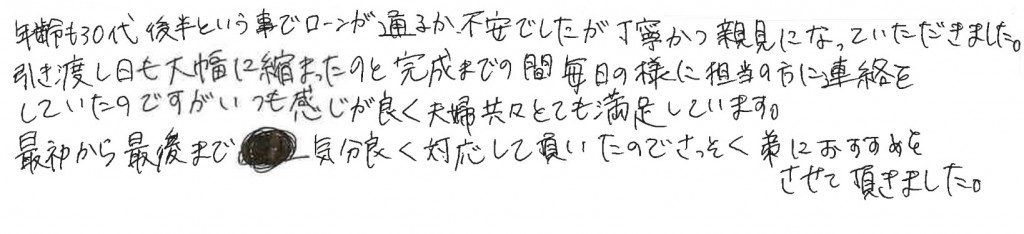 年齢も30代後半という事でローンが通るか不安でしたが丁寧かつ親見になっていただきました。
引き渡し日も大幅に縮まったのと完成までの間毎日の様に担当の方に連絡を
していたのですがいつも感じが良く夫婦共々とても満足しています。
最初から最後まで気分良く対応して頂いたのでさっそく弟におすすめを
させて頂きました。